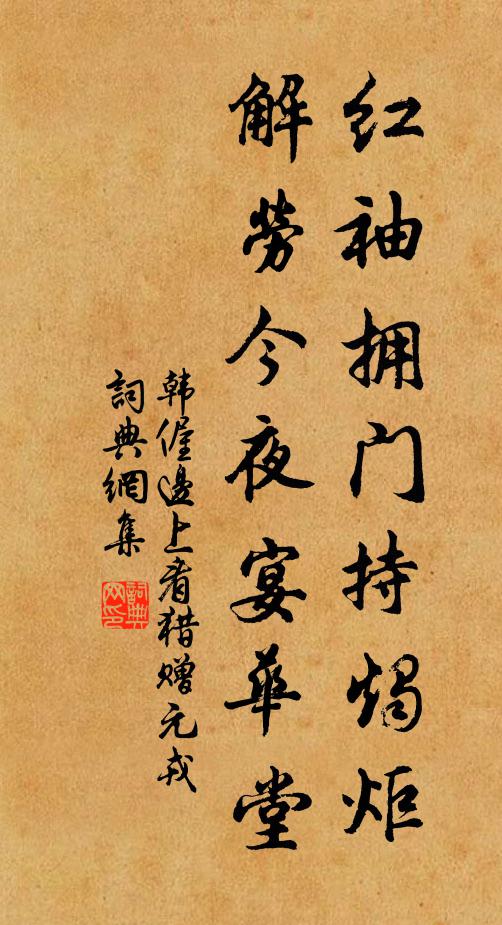 红袖拥门持烛炬
解劳今夜宴华堂
韩偓边上看猎赠元戎
词典网集
词典网印